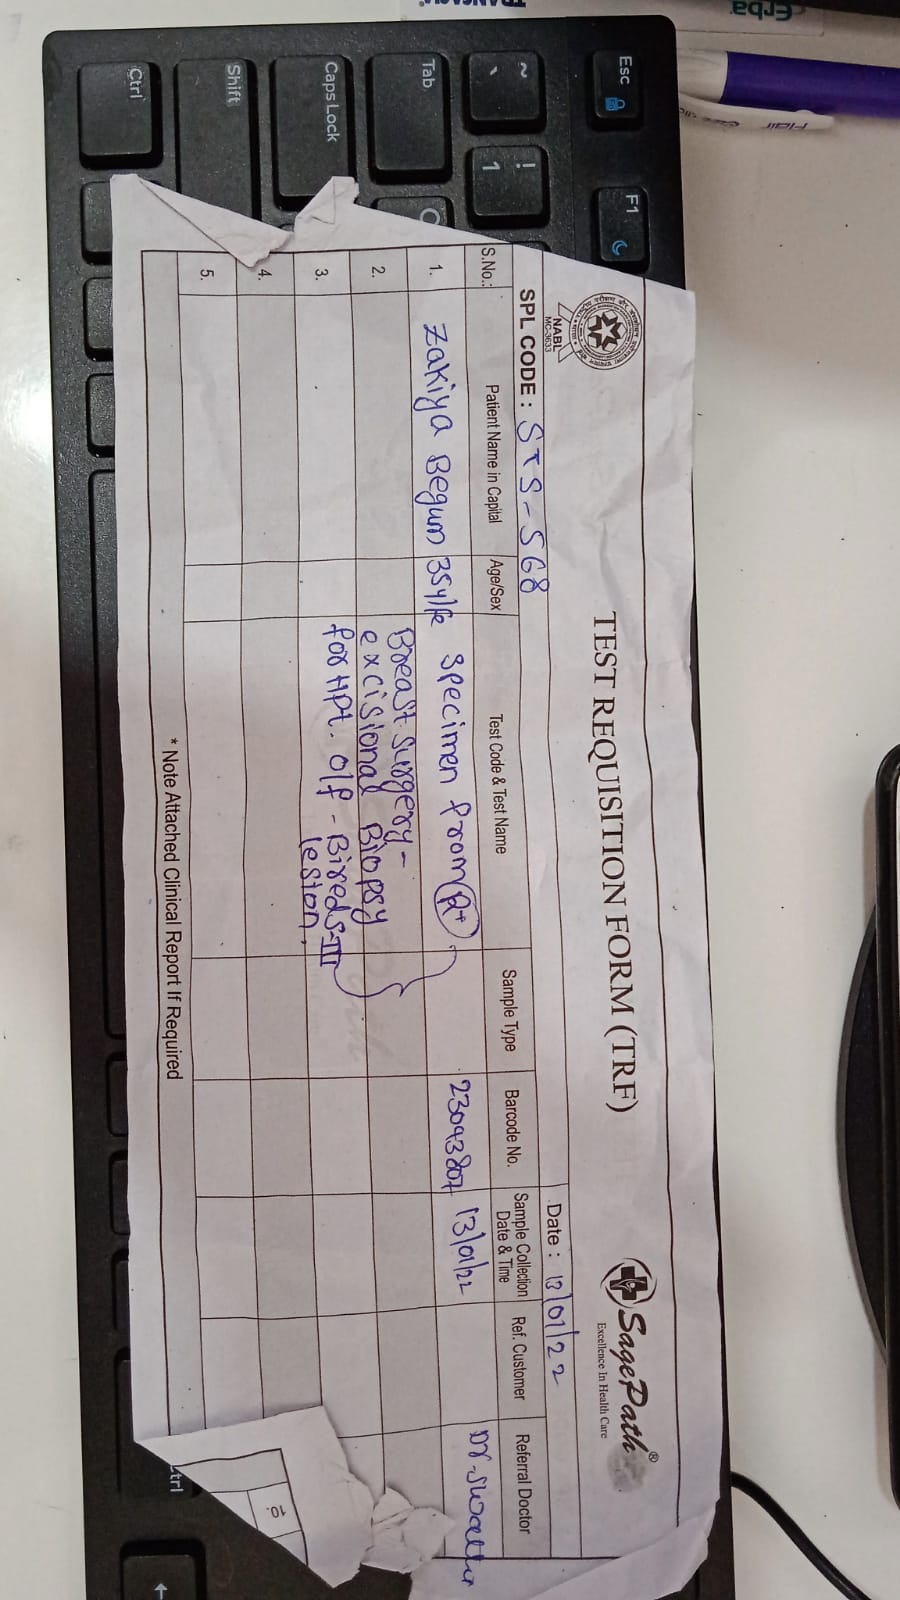 TRANSASIA
Erba
Esc
F1
~
`
!
1
Tab
Caps Lock
Shift
Ctrl
NABL
MC-3633
TEST REQUISITION FORM (TRF)
SagePath®
Excellence In Health Care
SPL CODE : STS-568
Date : 13/01/22
S.No.: Patient Name in Capital Age/Sex Test Code & Test Name Sample Type Barcode No. Sample Collection Date & Time Ref. Customer Referral Doctor
1. Zakiya Begum 35y/fe Specimen from Rt 23093807 13/01/22 Dr.
2. Breast surgery-
excisional Biopsy
3. for HPE. o/f - Bireds-III
lesion.
4.
5.
* Note Attached Clinical Report If Required
10.
trl